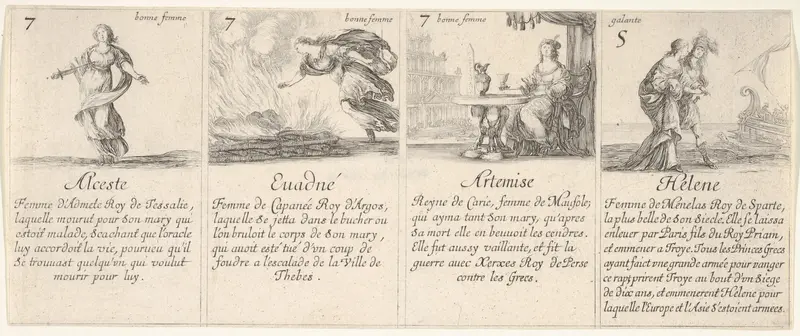 7 bonne femme
Alceste
Femme d'Admete Roy de Tessalie,
laquelle mourut pour Son mary qui
estoit malade, Scachant que l'oracle
luy accordoit la vie, pourueu qu'il
Se trouuast quelqu'vn qui voulut
mourir pour luy.
7 bonne femme
Euadné
Femme de Capaneé Roy d'Argos,
laquelle Se jetta dans le bucher ou
l'on bruloit le corps de Son mary,
qui auoit esté tué d'vn coup de
foudre a l'escalade de la Ville de
Thebes.
7 bonne femme
Artemise
Reyne de Carie, femme de Mausole;
qui ayma tant Son mary, qu'apres
Sa mort elle en beuuoit les cendres.
Elle fut aussy vaillante, et fit la
guerre avec Xerxes Roy de Perse
contre les Grecs.
galante
S
Hélene
Femme de Menelas Roy de Sparte,
la plus belle de Son Siecle. Elle se laissa
enleuer par Paris fils du Roy Priam,
et emmener a Troye. Tous les Princes Grecs
ayant faict vne grande armée pour vanger
ce rapt prirent Troye au bout d'vn Siege
de dix ans, et emmenerent Hélene pour
laquelle l'Europe et l'Asie S'estoient armées.